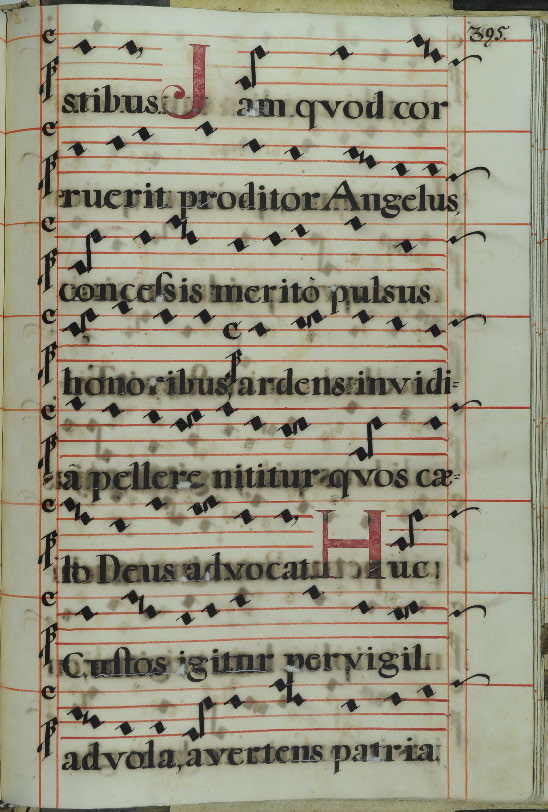 395.
stibus. Jam qvod cor
ruerit proditor Angelus,
concessis meritò pulsus
honoribus ardens invidi=
â pellere nititur qvos cæ=
lo Deus advocat. Huc
Custos igitur pervigil
advola, avertens patria